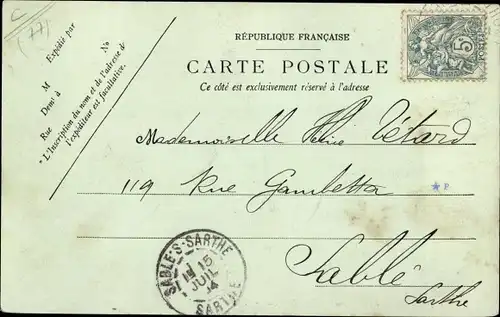 (77)
RÉPUBLIQUE FRANÇAISE
CARTE POSTALE
Ce côté est exclusivement réservé à l'adresse
Expédié par
M
Demt à
Rue
No
* L'Inscription du nom et de l'adresse de
l'expéditeur est facultative.
5
POSTES
Mademoiselle Hélène Tétard
119 Rue Gambetta
Sablé
Sarthe
SABLÉ-S-SARTHE
15
JUIL
SARTHE